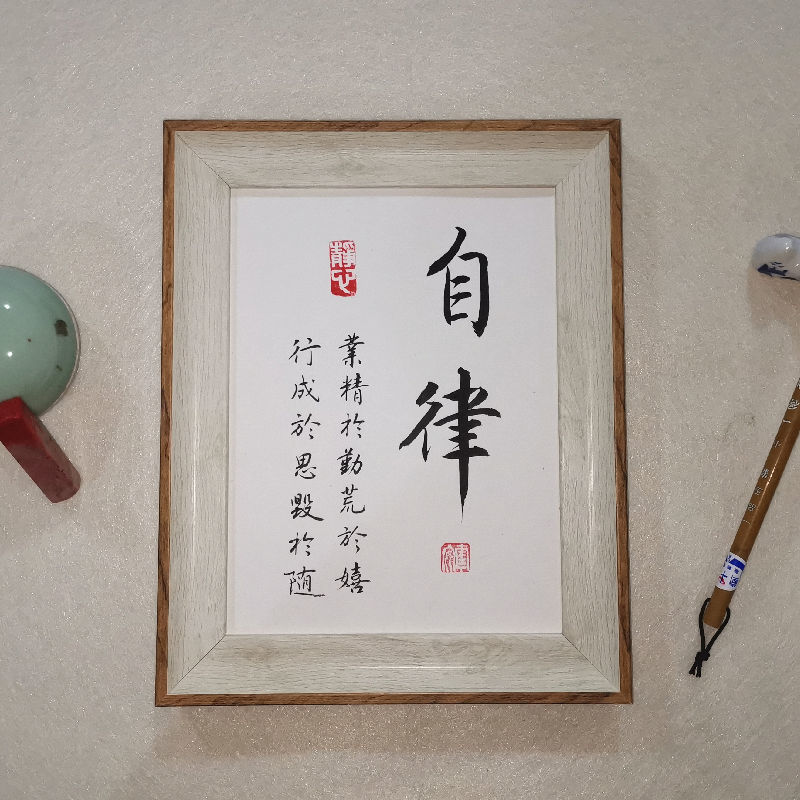 自律
業精於勤荒於嬉
行成於思毀於随
靜心